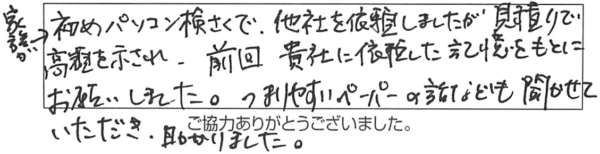 家族が
初めパソコン検さくで、他社を依頼しましたが見積りで
高額を示され、前回貴社に依頼した記憶をもとに
お願いしました。つまりやすいペーパーの話なども聞かせて
いただき、助かりました。
ご協力ありがとうございました。